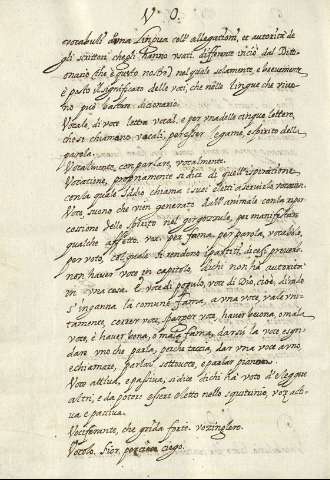 V O.
vocabuli d'una Lingua coll'allegationi, et autorità de
gli scrittori che gli hanno usati. differente è ciò dal Ditti-
onario (che è questo nostro) nel quale solamente, e brevemente
è posto il significato delle voci, che nelle lingue che vivo-
no può bastar. dicionario.
Vocale, di voce. lettera vocal. e per una delle cinque lettere,
che si chiamano vocali, per esser legame, e spirito della
parola.
Vocalmente, con parlar, vocalmente.
Vocatione, propriamente si dice di quell'Inspiratione,
con la quale Iddio chiama i suoi eletti a servirlo vocacion.
Voce, suono che vien generato dall'animale con la riper-
cossione dello spirito nel gorgozule, per manifestare
qualche affetto. voz. per fama, per parola, vocabolo,
per voto col quale si rendono i partiti,
non haver voce in capitolo, di chi non ha autorità
in una cosa. E voce di popolo, voce di Dio, cioè, di rado
s'inganna la comune fama, a una voce, vale uni-
tamente, correr voce, sparger voce, haver buona, o mala
voce, è haver bona, o mala fama, darsi la voce
dar uno che parla, perche taccia, dar una voce a uno,
è chiamare, parlar sottovoce, è parlar piano.
Voce attiva, e passiva, si dice di chi ha voto d'eleggere
altri, e da potere essere eletto nello squitinio, voz acti-
va e passiva.
Vociferante, che grida forte. vozinglero.
fior. ciego.